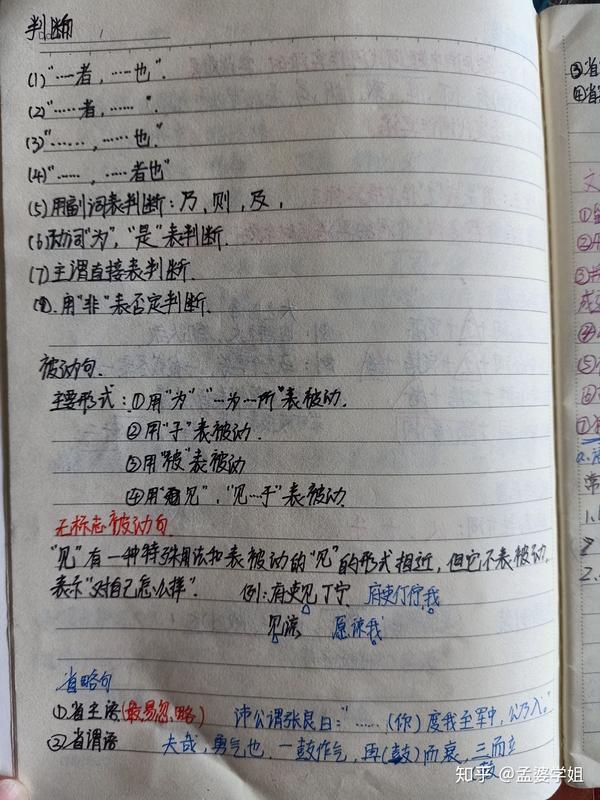 判断
(1)“……者，……也”.
(2)“……者，……”.
(3)“……，……也.”
(4)“……，……者也”
(5)用副词表判断：乃,则,及,
(6)动词“为”，“是”表判断.
(7)主谓直接表判断.
(8).用“非”表否定判断.
被动句.
主要形式：①用“为”“…为…所”表被动.
②用“于”表被动.
③用“被”表被动
④用“见”，“见…于”表被动.
无标志被动句.
“见”有一种特殊用法和表被动的“见”的形式相近，但它不表被动.
表示“对自己怎么样”.  例：府吏见丁宁  府吏叮咛我
见谅  原谅我
省略句
①省主语(最易忽略)  沛公谓张良曰：“……(你)度我至军中,公乃入。”
②省谓语  夫战，勇气也.一鼓作气，再(鼓)而衰，三而
③省
④省
文
①
②
③
成
⑤
⑥
⑦
a.
常
1.
2
2.
知乎 @孟婆学姐